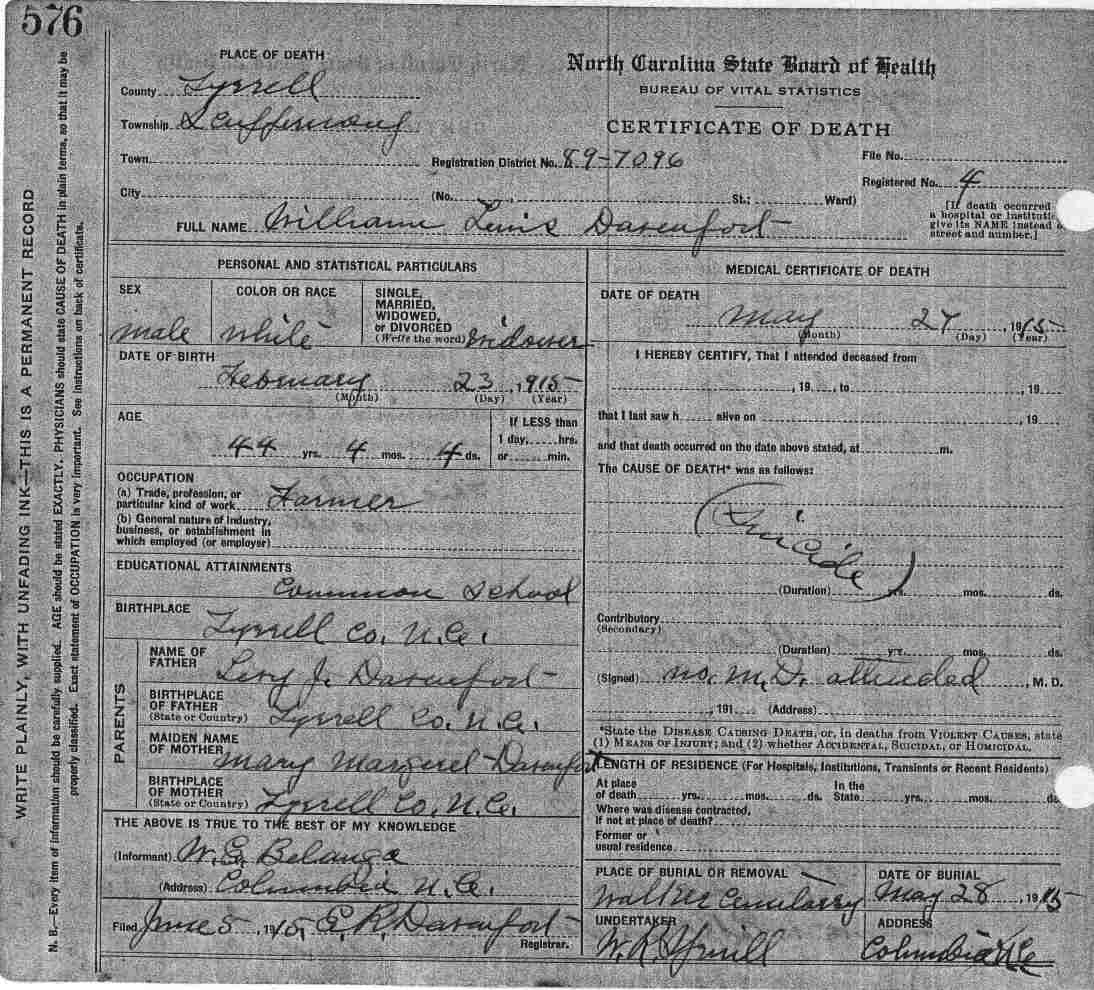 576
WRITE PLAINLY, WITH UNFADING INK—THIS IS A PERMANENT RECORD
N. B.—Every item of information should be carefully supplied. AGE should be stated EXACTLY. PHYSICIANS should state CAUSE OF DEATH in plain terms, so that it may be
properly classified. Exact statement of OCCUPATION is very important. See instructions on back of certificate.
PLACE OF DEATH
County Tyrrell
Township Scuppernong
Town
City
North Carolina State Board of Health
BUREAU OF VITAL STATISTICS
CERTIFICATE OF DEATH
Registration District No. 89-7096
File No.
Registered No. 4
(No. , St.; Ward)
[If death occurred
a hospital or institutio
give its NAME instead o
street and number.]
FULL NAME William Lewis Davenport
PERSONAL AND STATISTICAL PARTICULARS
SEX
male
COLOR OR RACE
white
SINGLE,
MARRIED,
WIDOWED,
or DIVORCED
(Write the word) widower
DATE OF BIRTH
February 23, 1915
(Month) (Day) (Year)
AGE
44 yrs. 4 mos. 4 ds.
If LESS than
1 day, hrs.
or min.
OCCUPATION
(a) Trade, profession, or
particular kind of work Farmer
(b) General nature of industry,
business, or establishment in
which employed (or employer)
EDUCATIONAL ATTAINMENTS
Common School
BIRTHPLACE
Tyrrell Co. N.C.
PARENTS
NAME OF
FATHER
Levy J. Davenport
BIRTHPLACE
OF FATHER
(State or Country) Tyrrell Co. N.C.
MAIDEN NAME
OF MOTHER
Mary Margeret Davenport
BIRTHPLACE
OF MOTHER
(State or Country) Tyrrell Co. N.C.
THE ABOVE IS TRUE TO THE BEST OF MY KNOWLEDGE
(Informant) W. G. Belanga
(Address) Columbia N.C.
Filed June 5, 1915, E. R. Davenport
Registrar.
MEDICAL CERTIFICATE OF DEATH
DATE OF DEATH
May 27, 1915
(Month) (Day) (Year)
I HEREBY CERTIFY, That I attended deceased from
, 19 , to , 19
that I last saw h alive on , 19
and that death occurred on the date above stated, at m.
The CAUSE OF DEATH* was as follows:
(Suicide)
(Duration) yrs. mos. ds.
Contributory
(Secondary)
(Duration) yrs. mos. ds.
(Signed) no. M.D. attended, M. D.
, 191 (Address)
*State the DISEASE CAUSING DEATH, or, in deaths from VIOLENT CAUSES, state
(1) MEANS OF INJURY; and (2) whether ACCIDENTAL, SUICIDAL, or HOMICIDAL.
LENGTH OF RESIDENCE (For Hospitals, Institutions, Transients or Recent Residents)
At place
of death yrs. mos. ds.
In the
State yrs. mos. ds
Where was disease contracted,
if not at place of death?
Former or
usual residence
PLACE OF BURIAL OR REMOVAL
Walker Cemetarry
DATE OF BURIAL
May 28, 1915
UNDERTAKER
W. R. Spruill
ADDRESS
Columbia N.C.